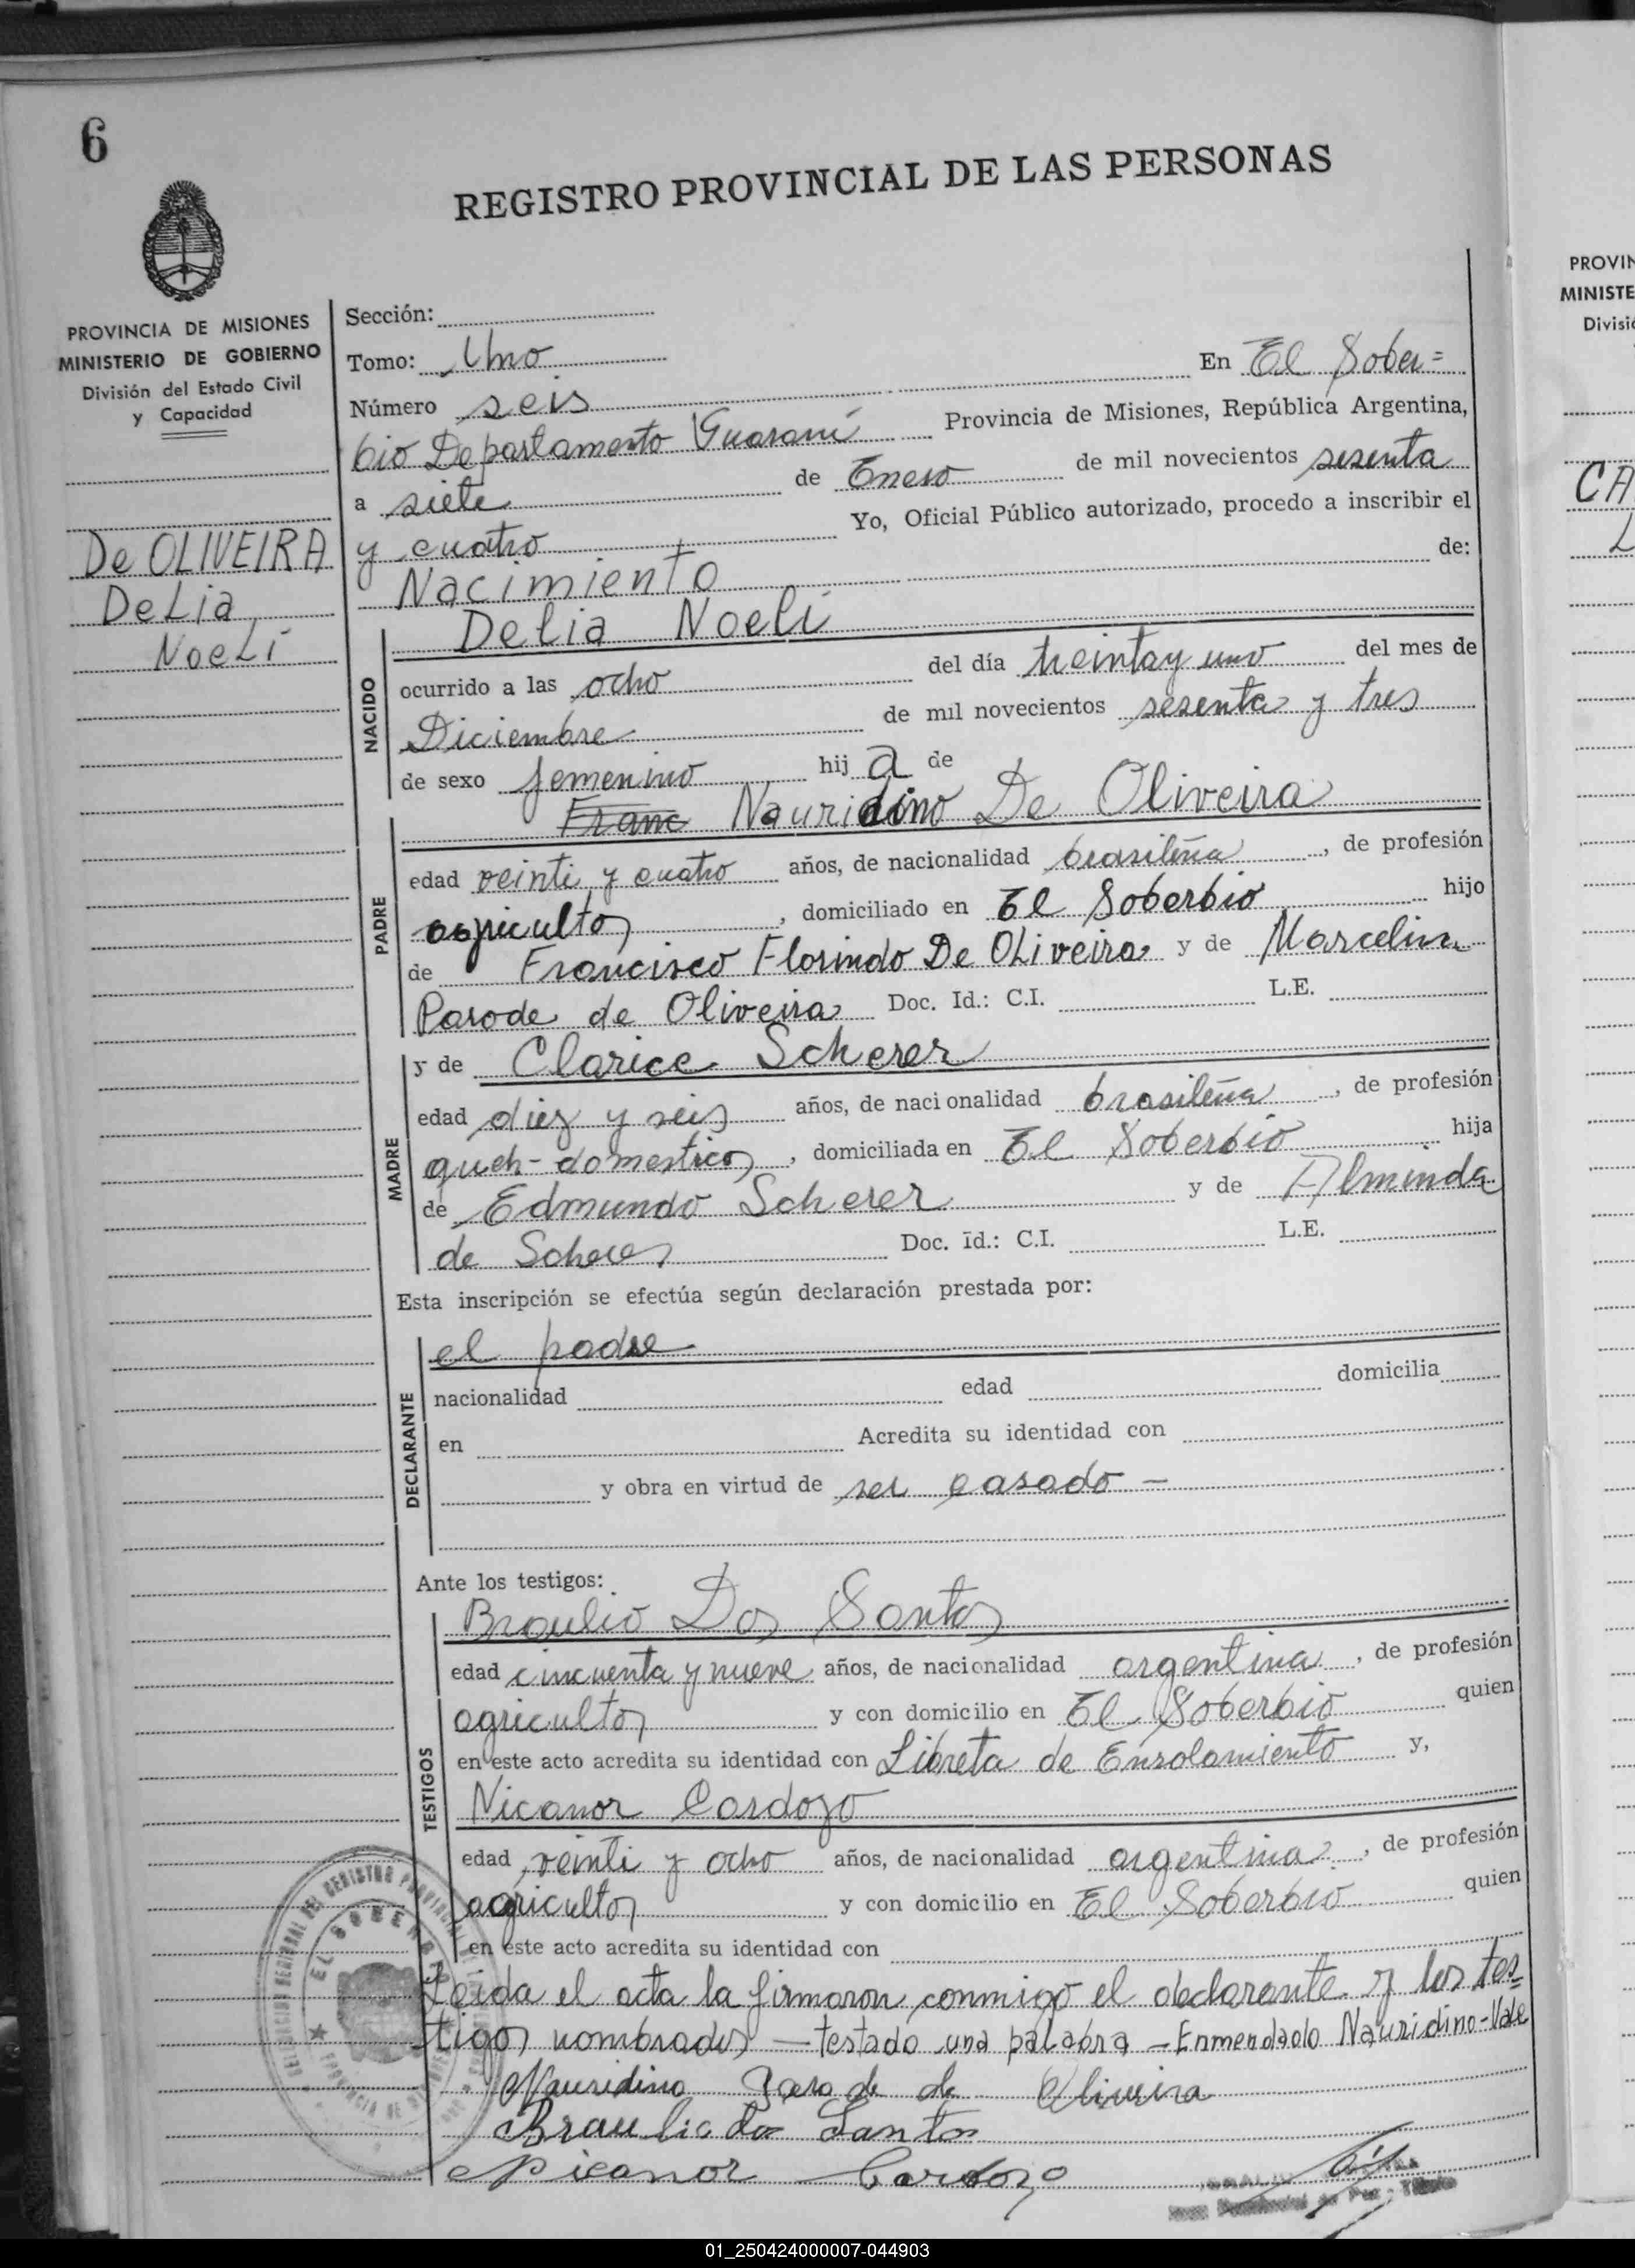 6
REGISTRO PROVINCIAL DE LAS PERSONAS
PROVINCIA DE MISIONES
MINISTERIO DE GOBIERNO
División del Estado Civil
y Capacidad
De OLIVEIRA
DeLia
NoeLí
Sección:
Tomo: Uno
En El Sober=
Número seis
bio Departamento Guaraní Provincia de Misiones, República Argentina,
a siete de Enero de mil novecientos sesenta
y cuatro Yo, Oficial Público autorizado, procedo a inscribir el
Nacimiento de:
NACIDO
Delia Noelí
ocurrido a las ocho del día treinta y uno del mes de
Diciembre de mil novecientos sesenta y tres
de sexo femenino hij a de
PADRE
Franc Nauridino De Oliveira
edad veinti y cuatro años, de nacionalidad brasileña, de profesión
agricultor, domiciliado en El Soberbio hijo
de Francisco Florindo De OLiveira y de Marcelina
Parode de Oliveira Doc. Id.: C.I. L.E.
MADRE
y de Clarice Scherer
edad diez y seis años, de nacionalidad brasileña, de profesión
queh-domesticos, domiciliada en El Soberbio hija
de Edmundo Scherer y de Alminda
de Scherer Doc. Id.: C.I. L.E.
Esta inscripción se efectúa según declaración prestada por:
DECLARANTE
el padre
nacionalidad edad domicilia
en Acredita su identidad con
y obra en virtud de ser casado -
Ante los testigos:
TESTIGOS
Braulio Dos Santos
edad cincuenta y nueve años, de nacionalidad argentina, de profesión
agricultor y con domicilio en El Soberbio quien
en este acto acredita su identidad con Libreta de Enrolamiento y,
Nicanor Cardozo
edad veinti y ocho años, de nacionalidad argentina, de profesión
agricultor y con domicilio en El Soberbio quien
en este acto acredita su identidad con
Leida el acta la firmaron conmigo el declarante y los tes=
tigos nombrados - testado una palabra - Enmendado Nauridino - Vale
Nauridino Parode de Oliveira
Braulio dos Santos
Nicanor Cardozo
PROVIN
MINISTE
Divisió
CA
L
01_250424000007-044903